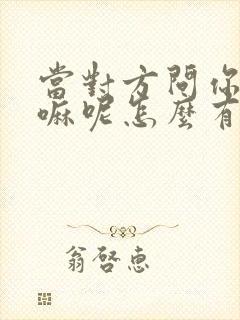 當對方問你
嘛呢怎麼有
翁啓惠